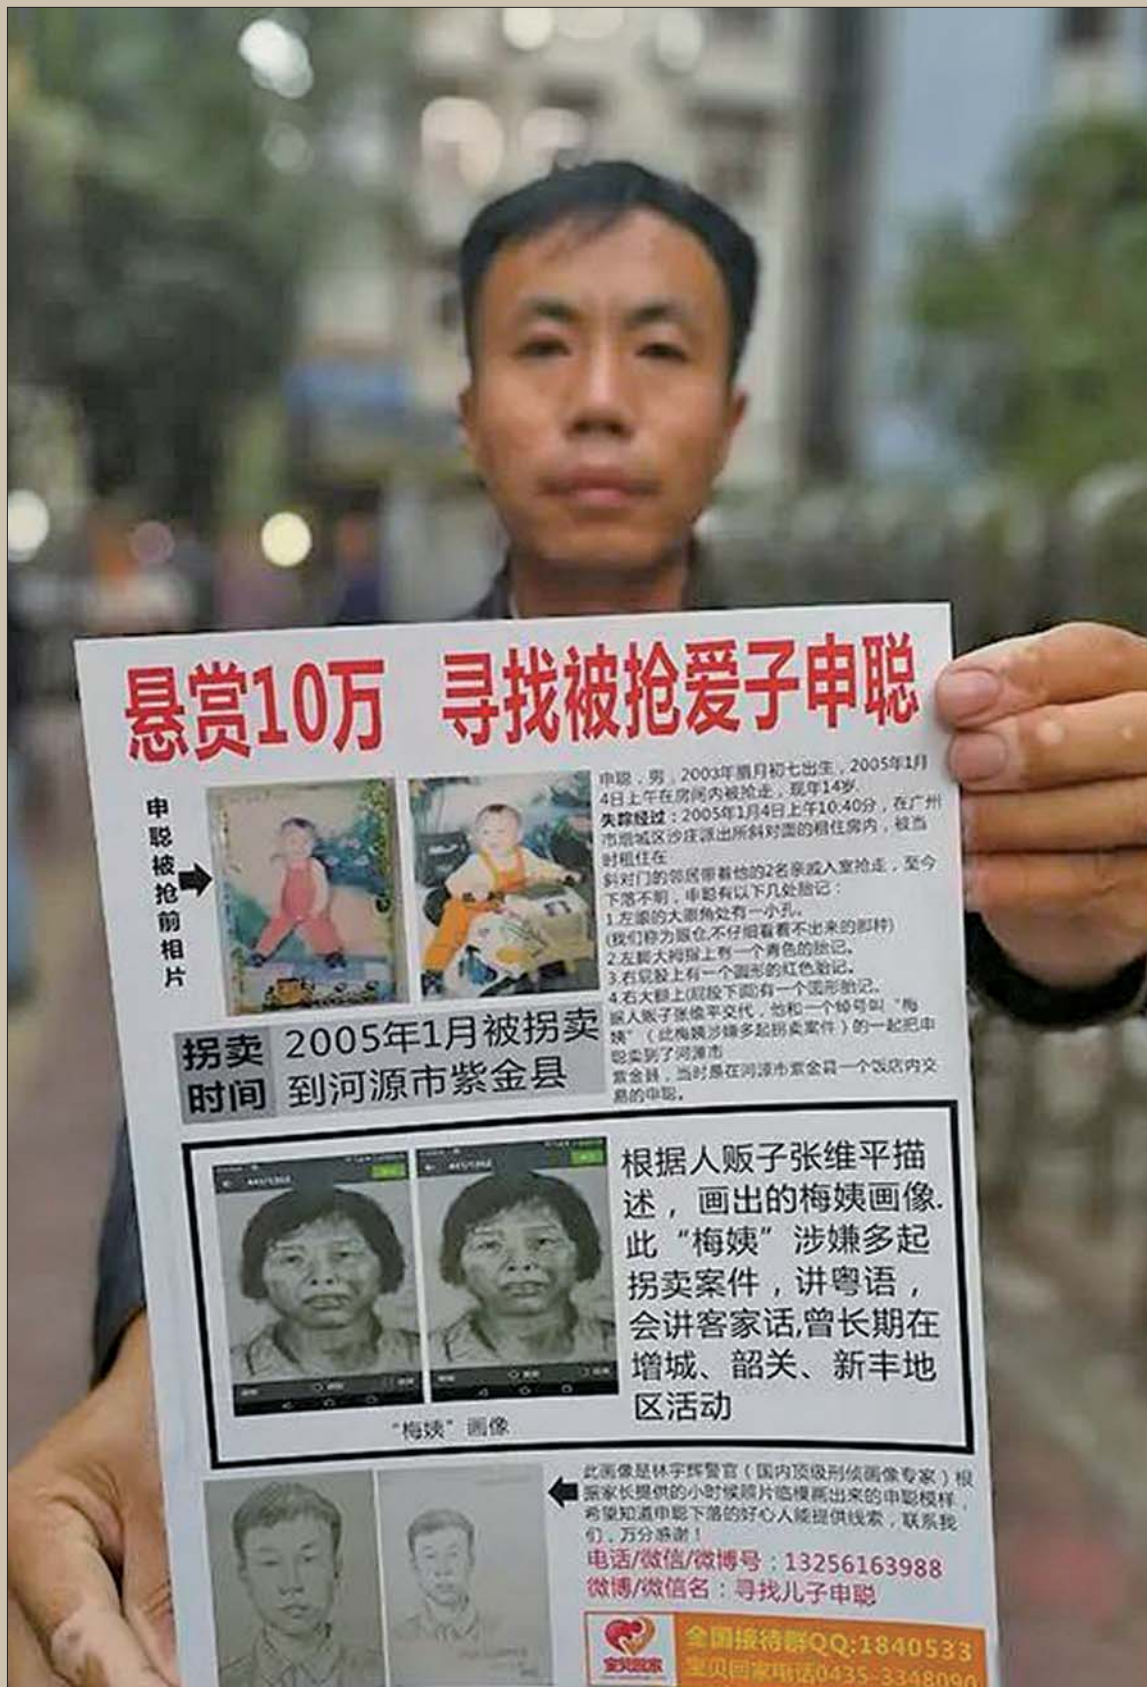 悬赏10万 寻找被抢爱子申聪
申聪被抢前相片
申聪，男，2003年腊月初七出生，2005年1月
4日上午在房间内被抢走，现年14岁.
失踪经过：2005年1月4日上午10:40分，在广州
市增城区沙庄派出所斜对面的租住房内，被当
时租住在
斜对门的邻居带着他的2名亲戚入室抢走，至今
下落不明，申聪有以下几处胎记：
1.左眼的大眼角处有一小孔。
(我们称为眼仓,不仔细看看不出来的那种)
2.左脚大拇指上有一个青色的胎记。
3.右屁股上有一个圆形的红色胎记。
4.右大腿上(屁股下面)有一个圆形胎记。
据人贩子张维平交代，他和一个绰号叫“梅
姨”（此梅姨涉嫌多起拐卖案件）的一起把申
聪卖到了河源市
紫金县，当时是在河源市紫金县一个饭店内交
易的申聪。
拐卖
时间
2005年1月被拐卖
到河源市紫金县
根据人贩子张维平描
述，画出的梅姨画像.
此“梅姨”涉嫌多起
拐卖案件，讲粤语，
会讲客家话,曾长期在
增城、韶关、新丰地
区活动
“梅姨”画像
此画像是林宇辉警官（国内顶级刑侦画像专家）根
据家长提供的小时候照片临模画出来的申聪模样，
希望知道申聪下落的好心人能提供线索，联系我
们，万分感谢！
电话/微信/微博号：13256163988
微博/微信名：寻找儿子申聪
宝贝回家
全国接待群QQ:1840533
宝贝回家电话0435-3348090